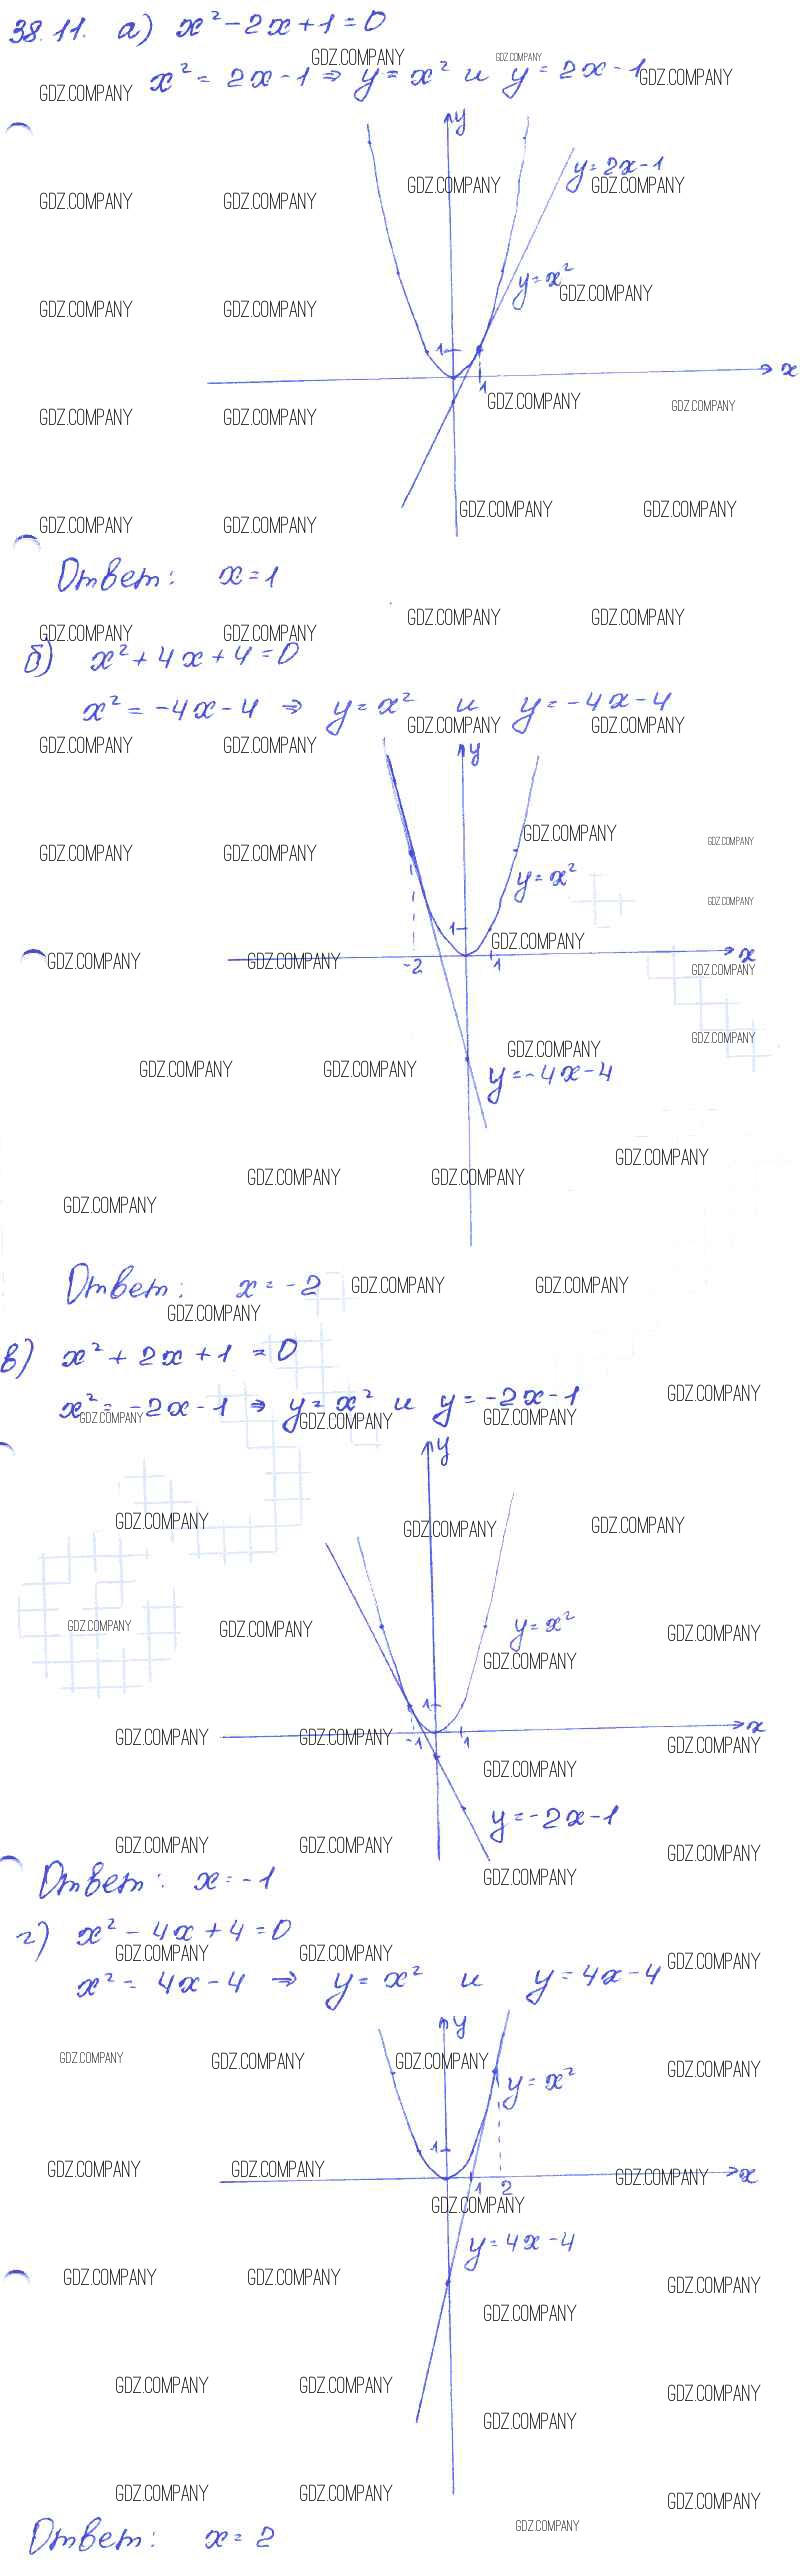 38.11. а) x² - 2x + 1 = 0
x² = 2x - 1 ⇒ y = x² и y = 2x - 1
y
y = 2x - 1
y = x²
1
x
1
Ответ: x = 1
б) x² + 4x + 4 = 0
x² = -4x - 4 ⇒ y = x² и y = -4x - 4
y
y = x²
1
x
-2 1
y = -4x - 4
Ответ: x = -2
в) x² + 2x + 1 = 0
x² = -2x - 1 ⇒ y = x² и y = -2x - 1
y
y = x²
1
x
-1 1
y = -2x - 1
Ответ: x = -1
г) x² - 4x + 4 = 0
x² = 4x - 4 ⇒ y = x² и y = 4x - 4
y
y = x²
1
x
1 2
y = 4x - 4
Ответ: x = 2
GDZ.COMPANY